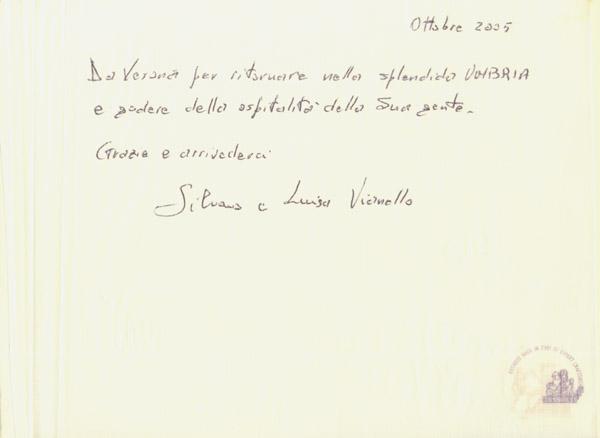 Ottobre 2005
Da Verona per ritornare nella splendida UMBRIA
e godere della ospitalità della Sua gente.
Grazie e arrivederci
Silvano e Luisa Vianello